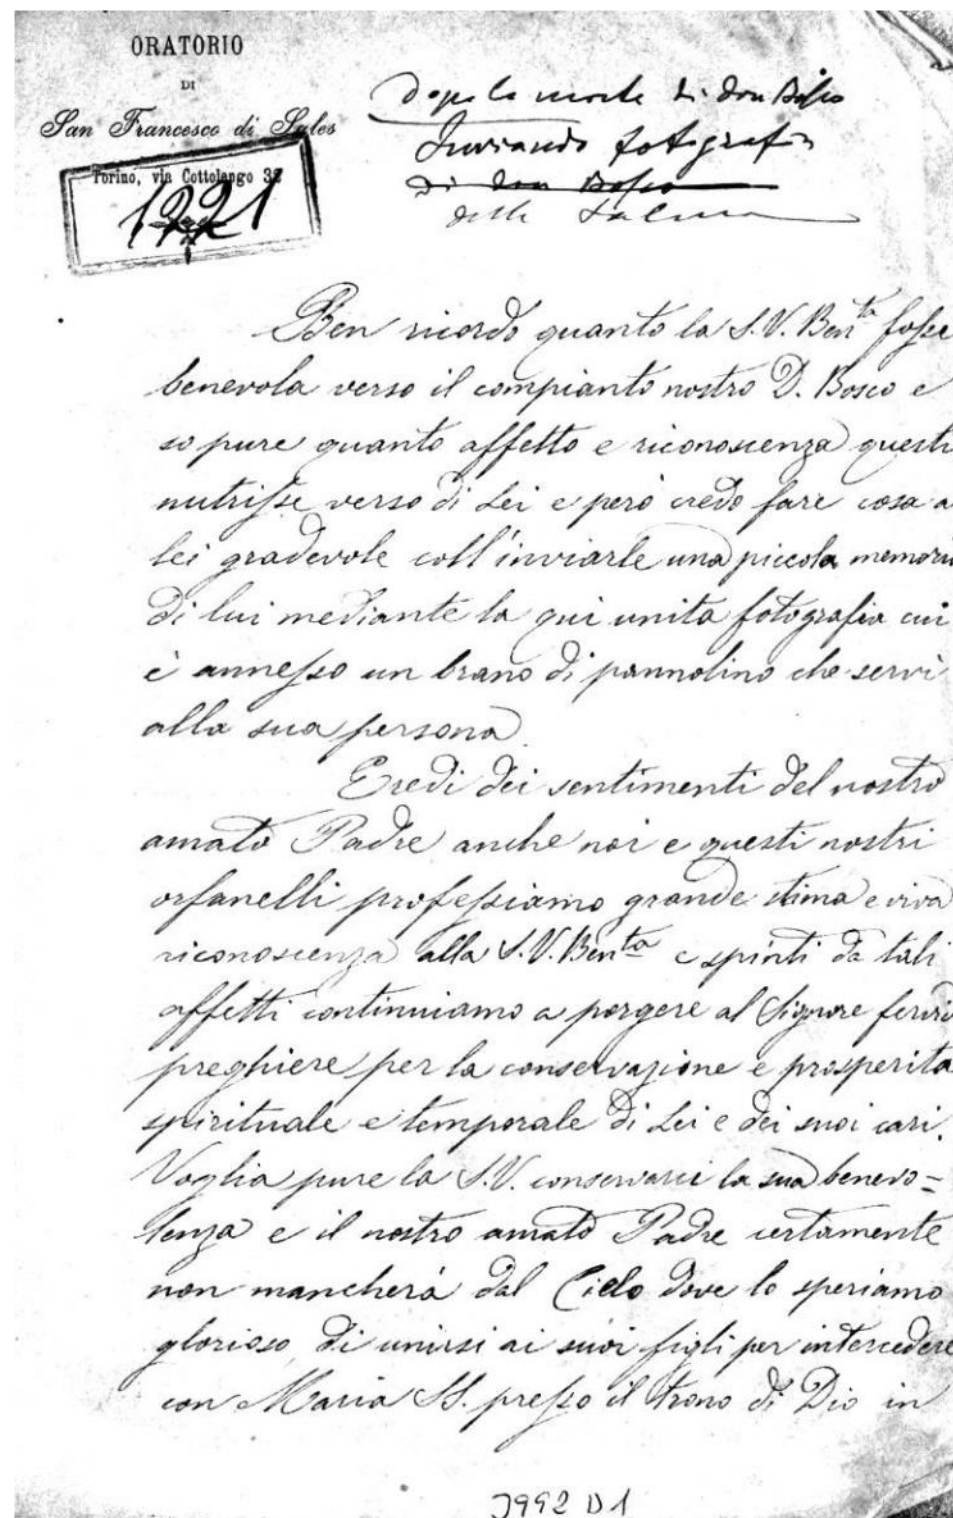 ORATORIO
DI
San Francesco di Sales
Torino, via Cottolengo 32
1221
Dopo la morte di don Bosco
Inviando fotografia
di don Bosco
della Salma
Ben ricordo quanto la S. V. Ben.ta fosse
benevola verso il compianto nostro D. Bosco e
so pure quanto affetto e riconoscenza questi
nutrisse verso di Lei e però credo fare cosa a
lei gradevole coll'inviarle una piccola memoria
di lui mediante la qui unita fotografia cui
è annesso un brano di pannolino che servì
alla sua persona
Eredi dei sentimenti del nostro
amato Padre anche noi e questi nostri
orfanelli professiamo grande stima e viva
riconoscenza alla S. V. Ben.ta e spinti da tali
affetti continuiamo a porgere al Signore fervide
preghiere per la conservazione e prosperità
spirituale e temporale di Lei e dei suoi cari.
Voglia pure la S. V. conservarci la sua benevo=
lenza e il nostro amato Padre certamente
non mancherà dal Cielo dove lo speriamo
glorioso di unirsi ai suoi figli per intercedere
con Maria SS. presso il trono di Dio in
3992 D1